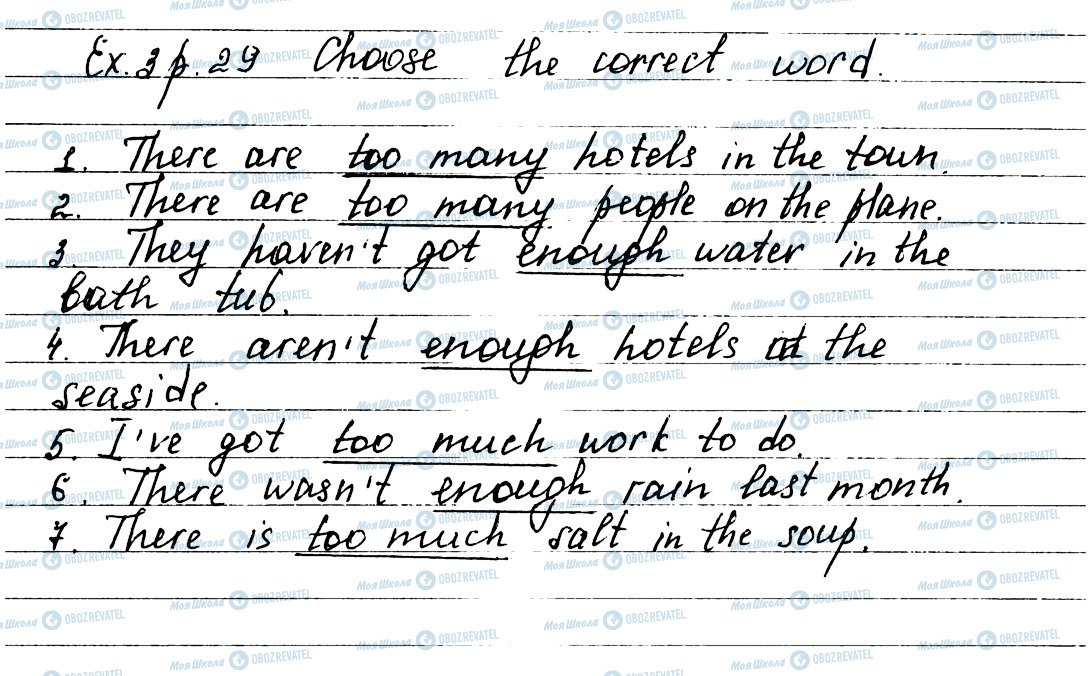 Ex. 3 p. 29 Choose the correct word.
1. There are too many hotels in the town.
2. There are too many people on the plane.
3. They haven't got enough water in the
bath tub.
4. There aren't enough hotels at the
seaside.
5. I've got too much work to do.
6. There wasn't enough rain last month.
7. There is too much salt in the soup.
МояШкола OBOZREVATEL